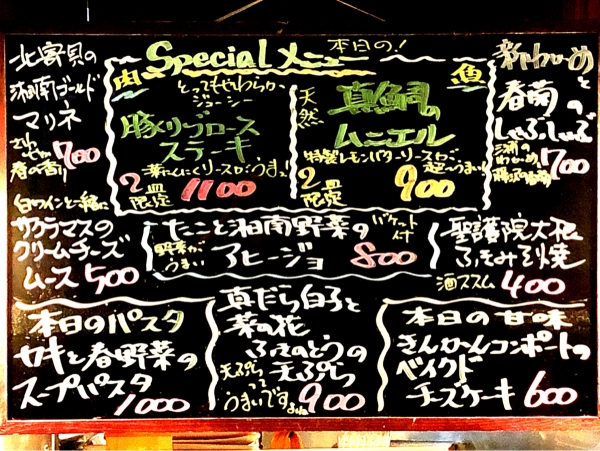 本日の!
Specialメニュー
北寄貝の
湘南ゴールド
マリネ
700
春の香り
白ワインと一緒に
サクラマスの
クリームチーズ
ムース 500
肉
とってもやわらか
ジューシー
豚リブロース
ステーキ
葉にんにくソースでうまっ!
2皿
限定
1100
魚
天然
真鯛の
ムニエル
特製レモンバターソースで
超〜うまい!
2皿
限定
900
新わかめ
と
春菊の
しゃぶしゃぶ
700
たこと湘南野菜の
バケット
付
野菜が
うまい
アヒージョ 800
聖護院大根
ふきみそ焼
酒ススム 400
本日のパスタ
カキと春野菜の
スープパスタ
1000
真だら白子と
菜の花、
ふきのとうの
天ぷら
天ぷら
って
うまいですよね
900
本日の甘味
きんかんコンポートの
ベイクド
チーズケーキ 600